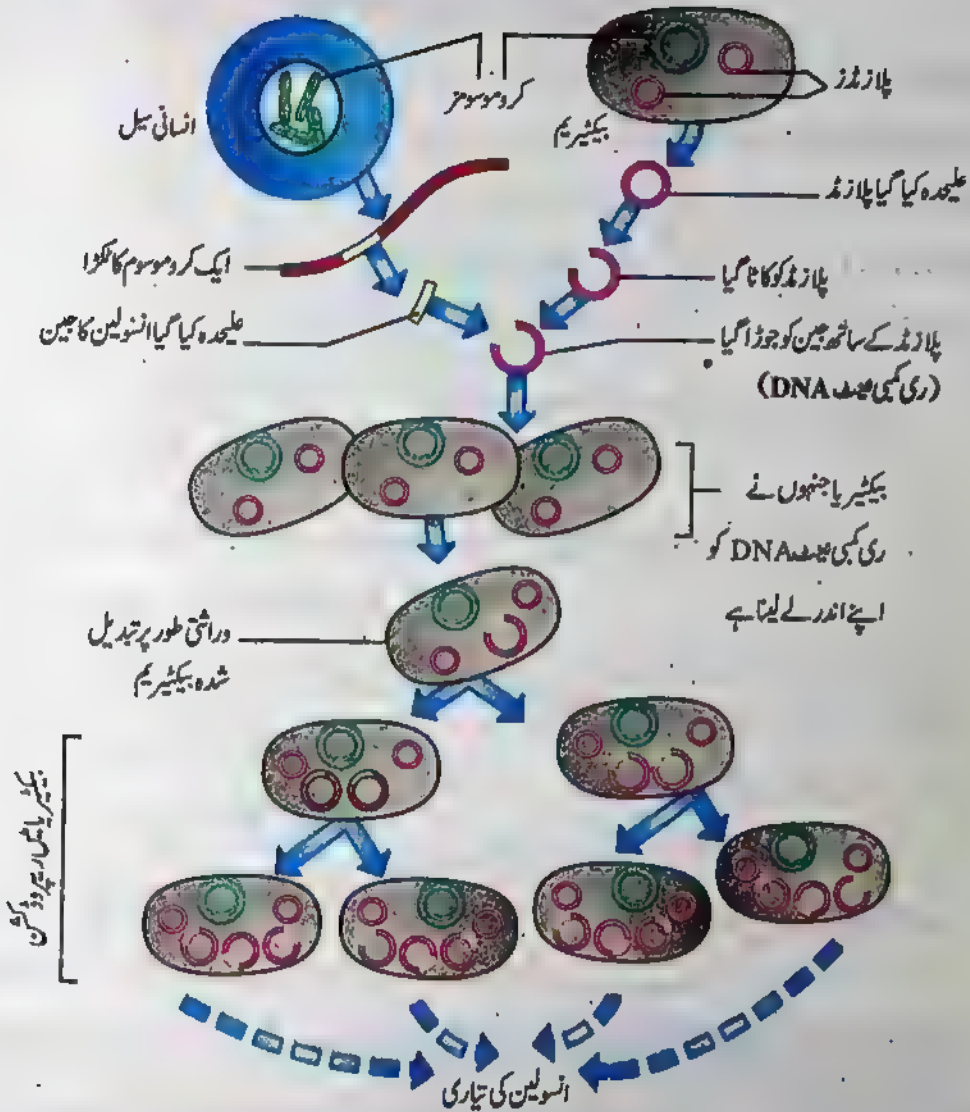 کروموسومز
پلازمڈز
انسانی سیل
بیکٹیریم
علیحدہ کیا گیا پلازمڈ
ایک کروموسوم کا ٹکڑا
پلازمڈ کو کاٹا گیا
علیحدہ کیا گیا انسولین کا جین
پلازمڈ کے ساتھ جین کو جوڑا گیا
(ری کمبی نینٹ DNA)
بیکٹیریا جنہوں نے
ری کمبی نینٹ DNA کو
اپنے اندر لے لیا ہے
وراثتی طور پر تبدیل
شدہ بیکٹیریم
بیکٹیریا میں ریپروڈکشن
انسولین کی تیاری